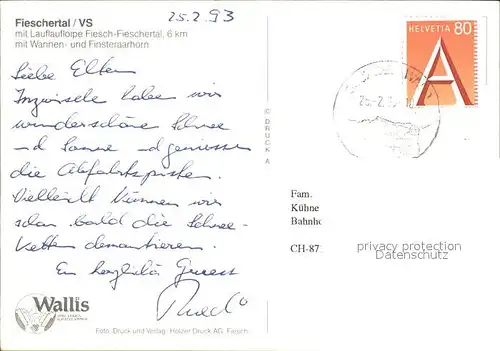 Fieschertal / VS
25.2.93
mit Lauflaufloipe Fiesch-Fieschertal, 6 km
mit Wannen- und Finsteraarhorn
HELVETIA 80
A
Liebe Eltern
Inzwischen haben wir
wunderschöne Schnee
und Sonne und geniessen
die Abfahrtspisten.
Vielleicht können wir
schon bald die Schnee-
Ketten demontieren.
Ein herzliche Gruess
© DRUCK A
Fam.
Kühne
Bahnho
CH-87
privacy protection
Datenschutz
Wallis
Foto, Druck und Verlag: Holzer Druck AG, Fiesch